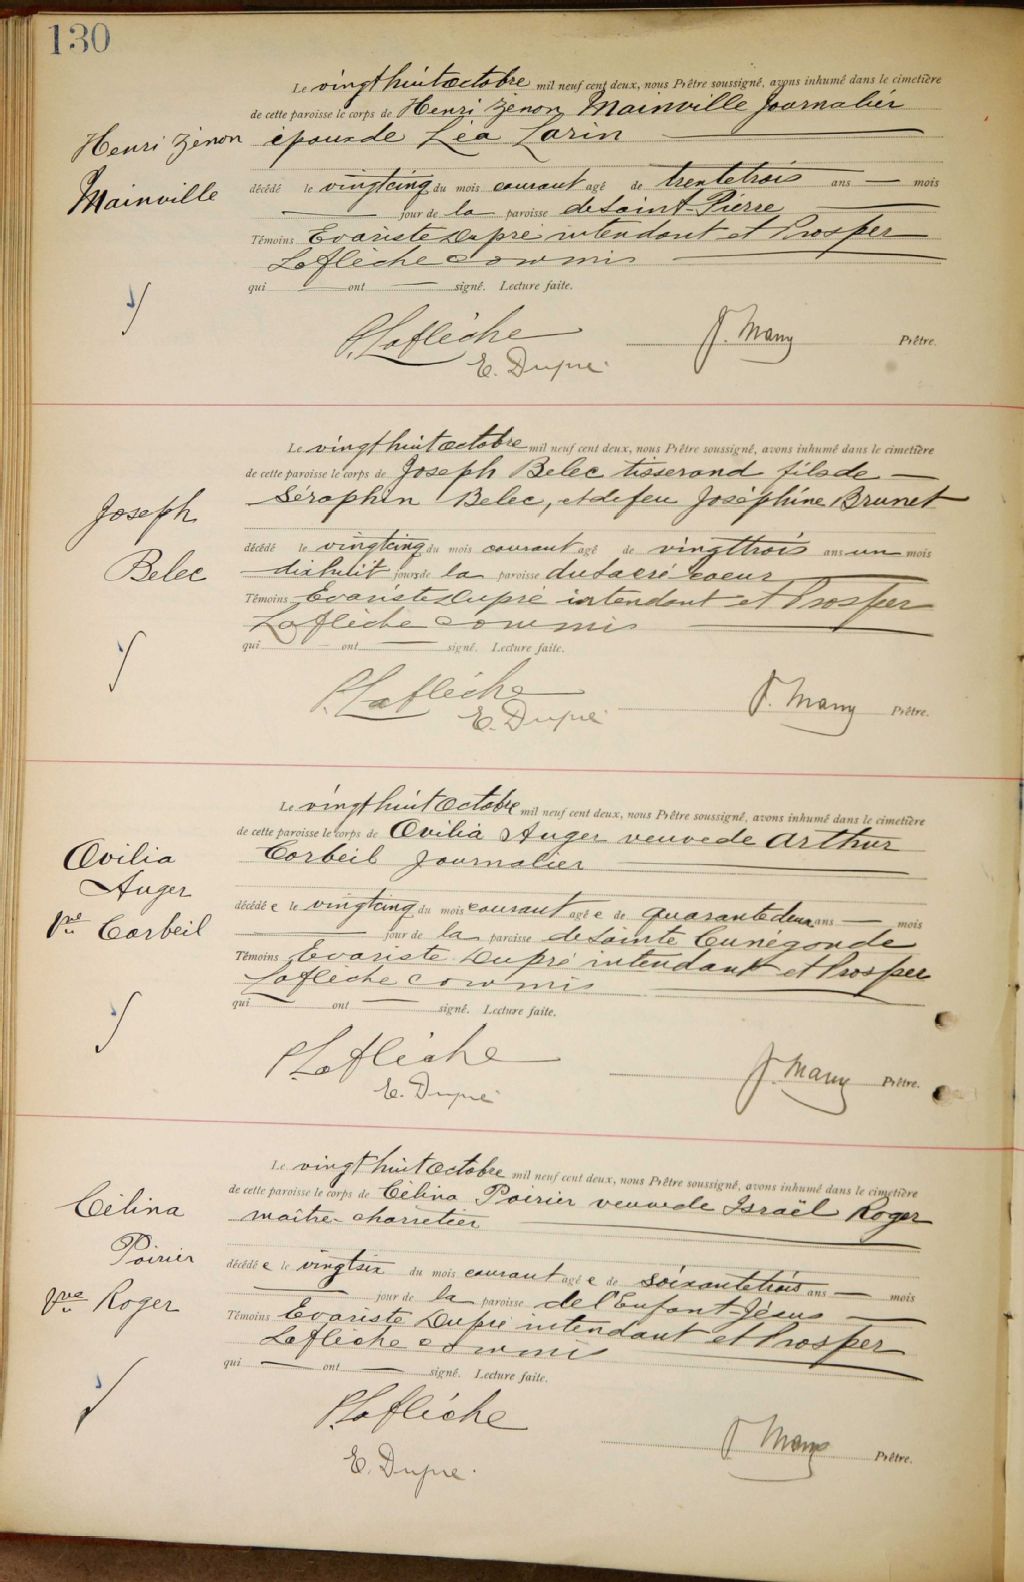 130
Le vingthuit octobre mil neuf cent deux, nous Prêtre soussigné, avons inhumé dans le cimetière
de cette paroisse le corps de Henri Zénon Mainville Journalier
Henri Zénon
époux de Léa Larin
Mainville
décédé le vingtcinq du mois courant agé de trentetrois ans — mois
— jour de la paroisse de Saint-Pierre
Témoins Evariste Dupré intendant et Prosper
Laflèche commis
qui — ont — signé. Lecture faite.
P. Laflèche
J. Many Prêtre.
E. Dupré
Le vingthuit octobre mil neuf cent deux, nous Prêtre soussigné, avons inhumé dans le cimetière
de cette paroisse le corps de Joseph Belec tisserand fils de —
Séraphin Belec, et de feu Joséphine Brunet
Joseph
Belec
décédé le vingtcinq du mois courant agé de vingttrois ans un mois
dixhuit jours de la paroisse du Sacré coeur
Témoins Evariste Dupré intendant et Prosper
Laflèche commis
qui — ont — signé. Lecture faite.
P. Laflèche
J. Many Prêtre.
E. Dupré
Le vingthuit Octobre mil neuf cent deux, nous Prêtre soussigné, avons inhumé dans le cimetière
de cette paroisse le corps de Ovilia Auger veuve de Arthur
Ovilia
Corbeil journalier
Auger
Vve Corbeil
décédé e le vingtcinq du mois courant agé e de quarantedeux ans — mois
— jour de la paroisse de Sainte Cunégonde
Témoins Evariste Dupré intendant et Prosper
Laflèche commis
qui — ont — signé. Lecture faite.
P. Laflèche
J. Many Prêtre.
E. Dupré
Le vingthuit octobre mil neuf cent deux, nous Prêtre soussigné, avons inhumé dans le cimetière
de cette paroisse le corps de Célina Poirier veuve de Israël Roger
Célina
maître-charretier
Poirier
décédé e le vingtsix du mois courant agé e de soixantetrois ans — mois
Vve Roger
— jour de la paroisse de l'Enfant-Jésus
Témoins Evariste Dupré intendant et Prosper
Laflèche commis
qui — ont — signé. Lecture faite.
P. Laflèche
J. Many Prêtre.
E. Dupré.